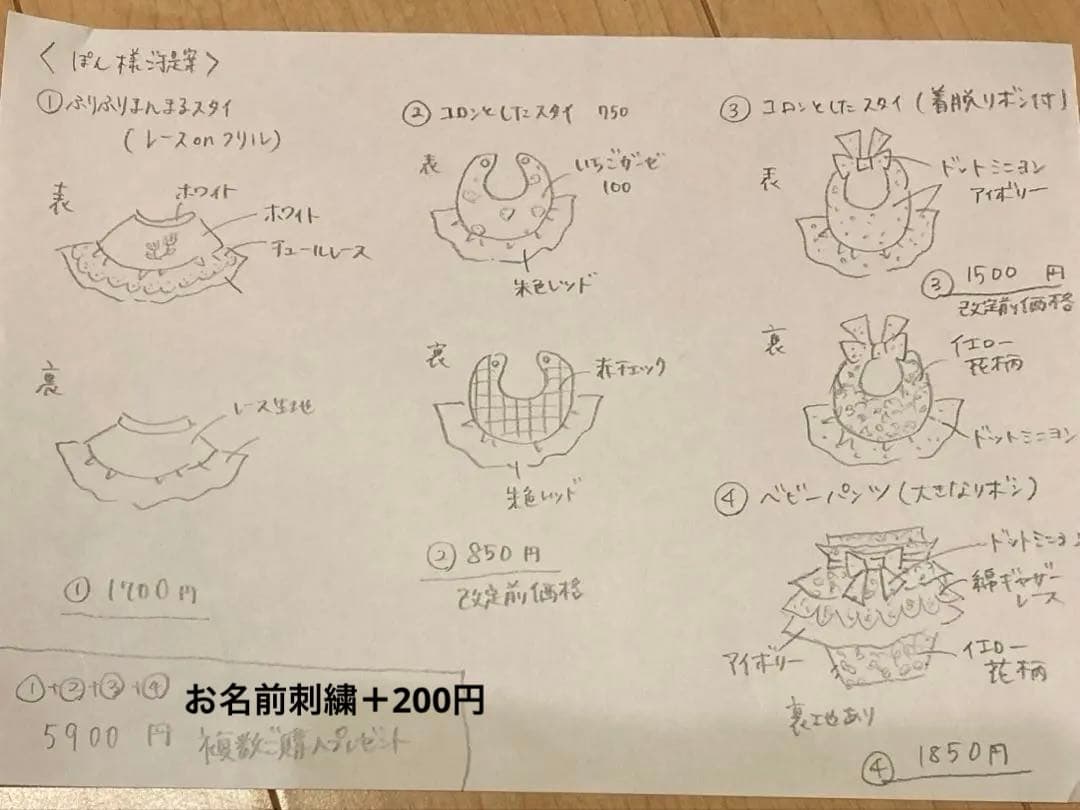 〈 ぽん様ご提案 〉
① ふりふりまんまるスタイ
(レース on フリル)
表
ホワイト
ホワイト
チュールレース
裏
レース生地
① 1700円
② コロンとしたスタイ 750
表
いちごガーゼ
100
朱色レッド
裏
赤チェック
朱色レッド
② 850円
改定前価格
③ コロンとしたスタイ (着脱リボン付)
表
ドットミニヨン
アイボリー
③ 1500 円
改定前価格
裏
イエロー
花柄
ドットミニヨン
④ ベビーパンツ (大きなリボン)
ドットミニヨン
綿ギャザー
レース
アイボリー
イエロー
花柄
裏地あり
④ 1850円
①+②+③+④
お名前刺繍＋200円
5900 円
複数ご購入プレゼント